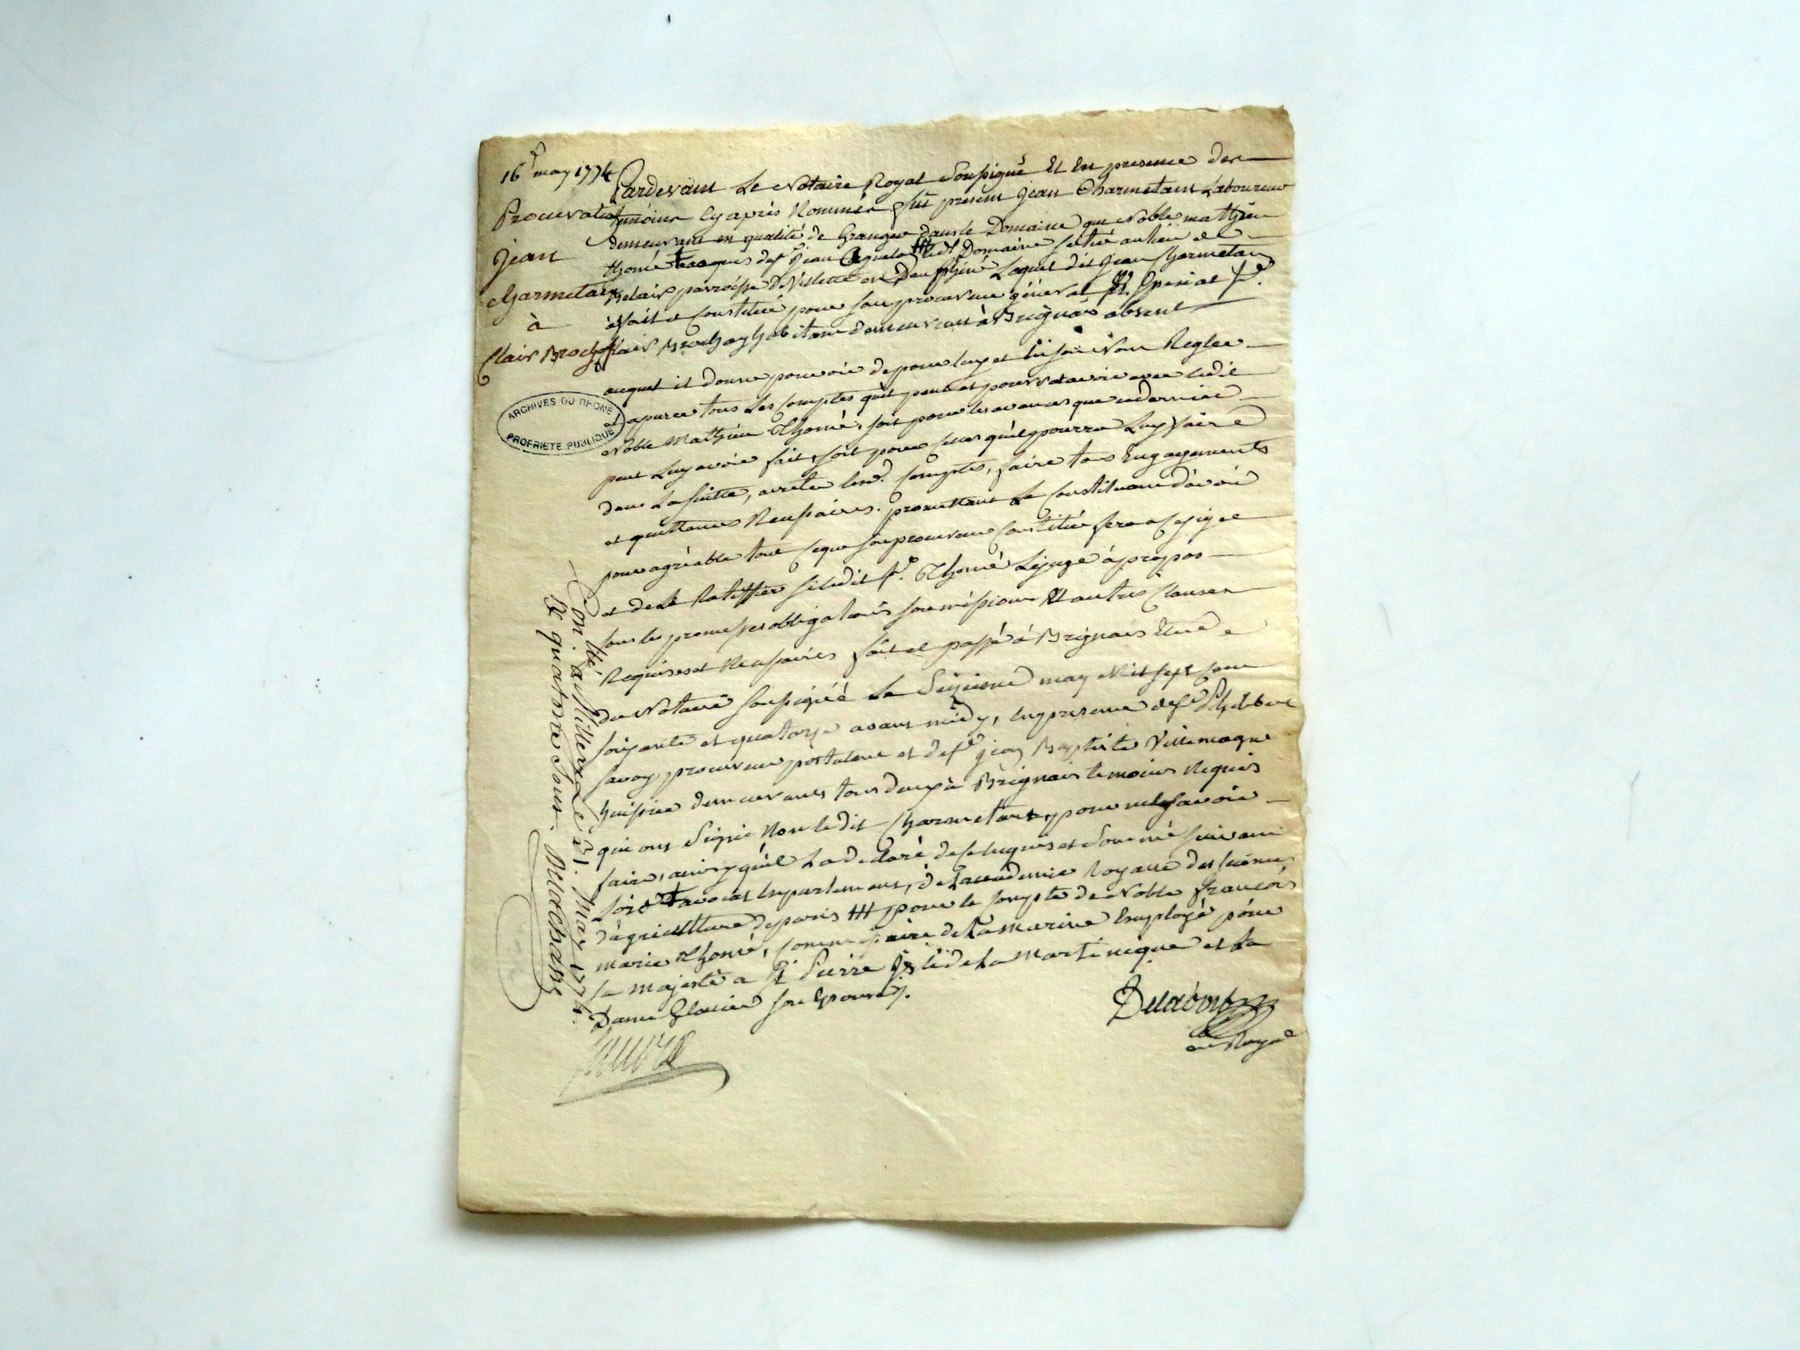 16 may 1774
Procuration
Jean
Charmetan
à
Clair Brochay
ARCHIVES DU RHONE
PROPRIETE PUBLIQUE
Pardevant Le Notaire Royal Soussigné Et En presence des
témoins cy après Nommés fut present Jean Charmetant Laboureur
demeurant en qualité de Granger dans le Domaine que Noble mathieu
thomé acquis de Sr Jean ledt Domaine scitué au lieu de
parroisse de Villette en Dauphiné Lequel dit Jean Charmetan
a fait et Constitué pour son procureur général Et Special Sr
Clair Brochay habitant demeurant à Brignais absent
auquel il donne pouvoir de pour luy et En son Nom Regler
et apurer tous Les Comptes qu'il peut et pourrat avoir avec ledit
Noble Mathieu Thomé, soit pour les avances que ce dernier
peut Luy avoir fait, soit pour celles qu'il pourra Luy faire
dans La suitte, arreter lesd. Comptes, faire tous Engagements
et quittances Necessaires. promettant Le Constituant d'avoir
pour agréable tout ce que son procureur Constitué fera
et de le Ratiffier si ledit Sr. Thomé Le juge à propos
sous les promesses obligations soumissions Et autres Clauses
Requises et Necessaires fait et passé à Brignais Etude
du Notaire soussigné Le Seizieme may Mil sept cent
soixante et quatorze avant midy, En presence de Sr
Savoy, procureur postulant et de Sr Jean Baptiste Villemagne
huissier demeurants tous deux à Brignais temoins Requis
qui ont Signé Non ledit Charmetant, pour ne le savoir
faire, ainsy qu'il La declaré de ce Enquis et Sommé suivant
L'ord. avocat En parlement, de L'academie Royale des sciences
d'agriculture de paris pour le Compte de Noble françois
marie Thomé, Commissaire de La marine Employé pour
sa majesté a St Pierre Isle de La Martinique et La
Dame Elouin son Epouse.
Con. llé à Millery Le 31. May 1774.
R quatorze sous. Delachasse